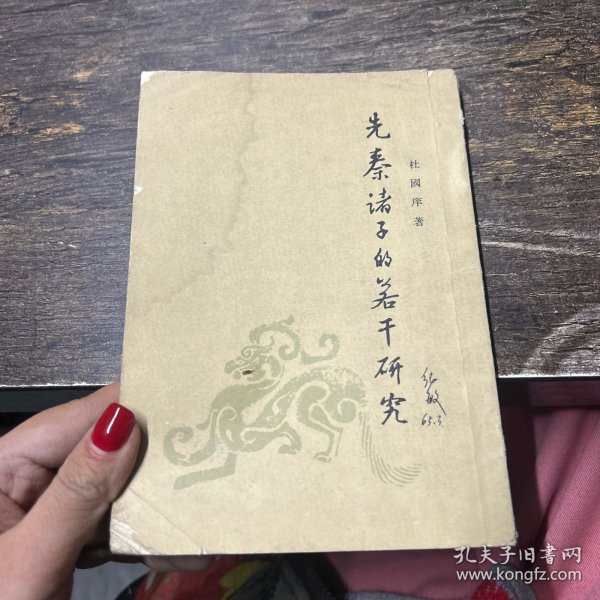 先秦诸子的若干研究
杜國庠著
65.3.
孔夫子旧書网
www.kongfz.com